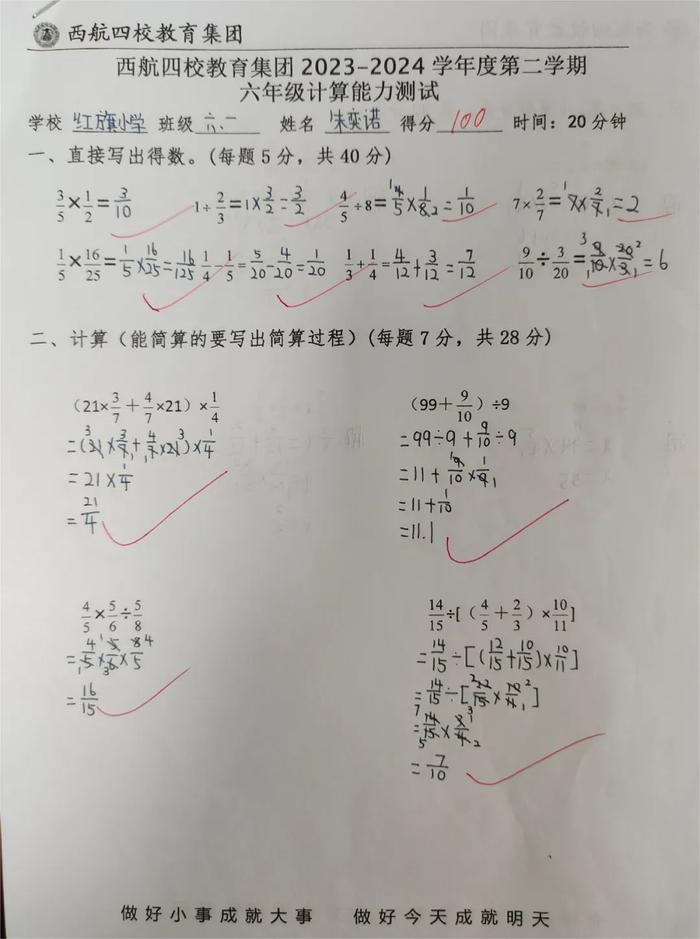 西航四校教育集团
西航四校教育集团 2023-2024 学年度第二学期
六年级计算能力测试
学校 红旗小学 班级 六.一 姓名 朱奕诺 得分 100 时间：20 分钟
一、直接写出得数。(每题 5 分，共 40 分)
3/5×1/2=3/10 1÷2/3=1×3/2=3/2 4/5÷8=4/5×1/8=1/10 7×2/7=7×2/7=2
1/5×16/25=1/5×16/25=16/125 1/4-1/5=5/20-4/20=1/20 1/3+1/4=4/12+3/12=7/12 9/10÷3/20=9/10×20/3=6
二、计算（能简算的要写出简算过程）(每题 7 分，共 28 分)
（21×3/7＋4/7×21）×1/4
=(21×3/7+4/7×21)×1/4
=21×1/4
=21/4
（99＋9/10）÷9
=99÷9+9/10÷9
=11+9/10×1/9
=11+1/10
=11.1
4/5×5/6÷5/8
=4/5×5/6×8/5
=16/15
14/15÷[（4/5＋2/3）×10/11]
=14/15÷[(12/15+10/15)×10/11]
=14/15÷[22/15×10/11]
=14/15×3/4
=7/10
做好小事成就大事 做好今天成就明天